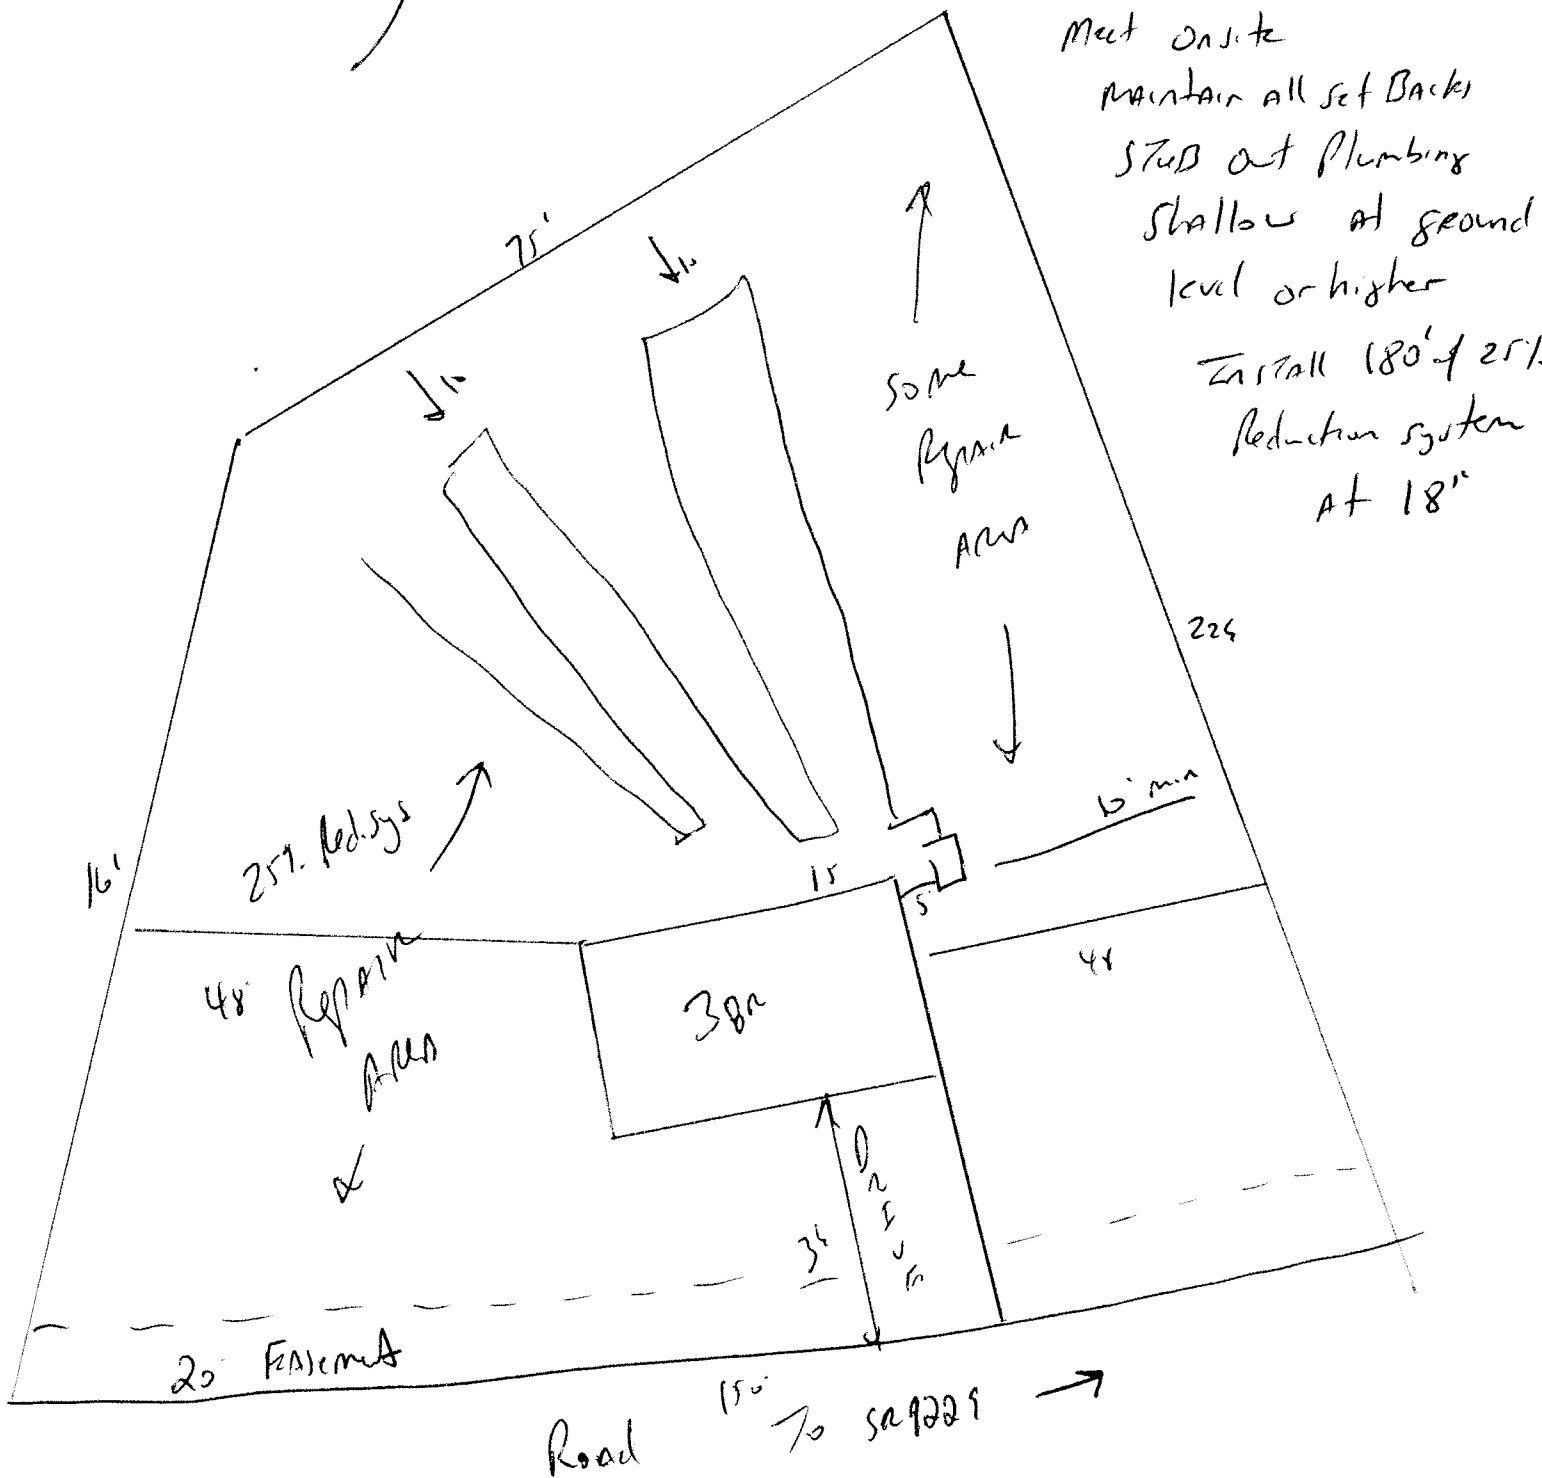 Meet Onsite
Maintain all set Backs
STUB out Plumbing
Shallow At ground
level or higher
Install 180' of 25%
Reduction system
At 18"
75'
10
10
Some
Repair
Area
224
10' min
25% Red. Sys
16'
15
5
48'
Repair
Area
3BR
48
Drive
20' Easement
150'
Road To SR